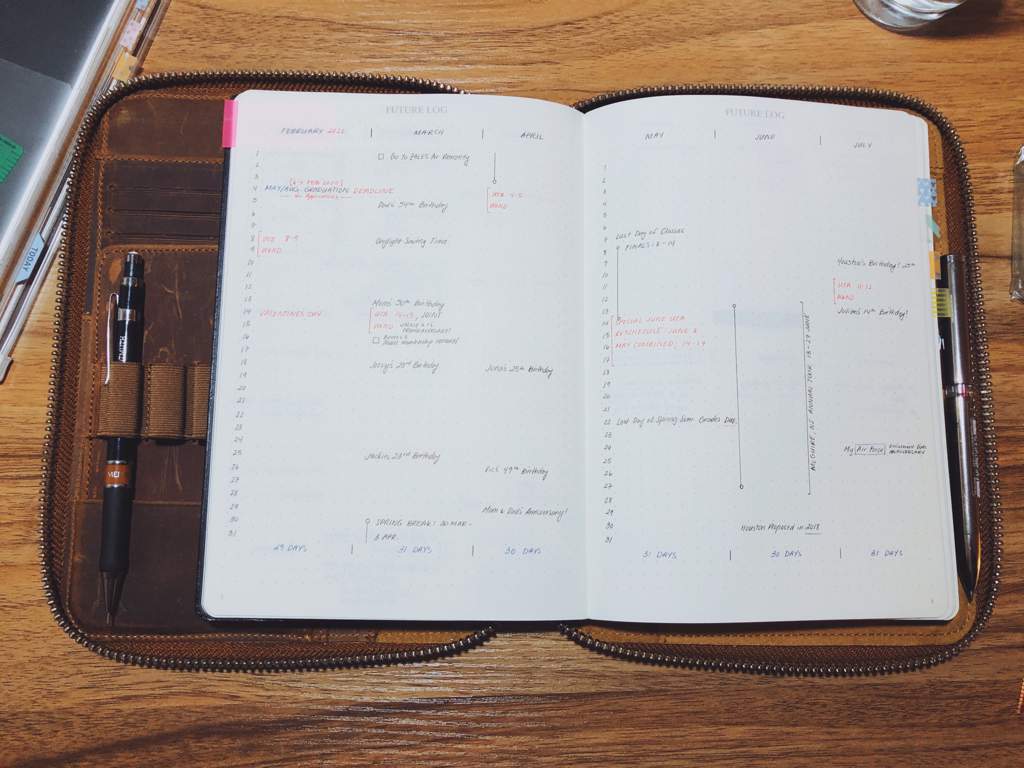 FUTURE LOG
FEBRUARY 2020 | MARCH | APRIL
1
2
3
4
5
6
7
8
9
10
11
12
13
14
15
16
17
18
19
20
21
22
23
24
25
26
27
28
29
30
31
MAY/AUG. GRADUATION DEADLINE
UTA 8-9
VALENTINES DAY
Go to ZALES
Dad's 54th Birthday
Daylight Saving Time
Mom's 50th Birthday
UTA 14-15, JOINT
Jerry's 23rd Birthday
Jackie 23rd Birthday
SPRING BREAK! 30 MAR -
3 APR.
UTA 4-5
June's 25th Birthday
49th Birthday
Mom & Dad's Anniversary!
29 DAYS | 31 DAYS | 30 DAYS
FUTURE LOG
MAY | JUNE | JULY
1
2
3
4
5
6
7
8
9
10
11
12
13
14
15
16
17
18
19
20
21
22
23
24
25
26
27
28
29
30
31
Last Day of Classes
FINALS: 8-14
SPECIAL JUNE UTA
RESCHEDULE JUNE &
MAY COMBINED, 14-17
Last Day of Spring Sem. Grades Due.
MCGUIRE, NJ ANNUAL TOUR 13-27 JUNE
Houston Proposed in 2018
Houston's Birthday! 25th
UTA 11-12
Julian's 14th Birthday!
My Air Force Enlistment Date
ANNIVERSARY
31 DAYS | 30 DAYS | 31 DAYS
TODAY